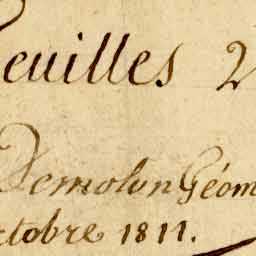 euilles 2
Demolun Géom
ctobre 1811.